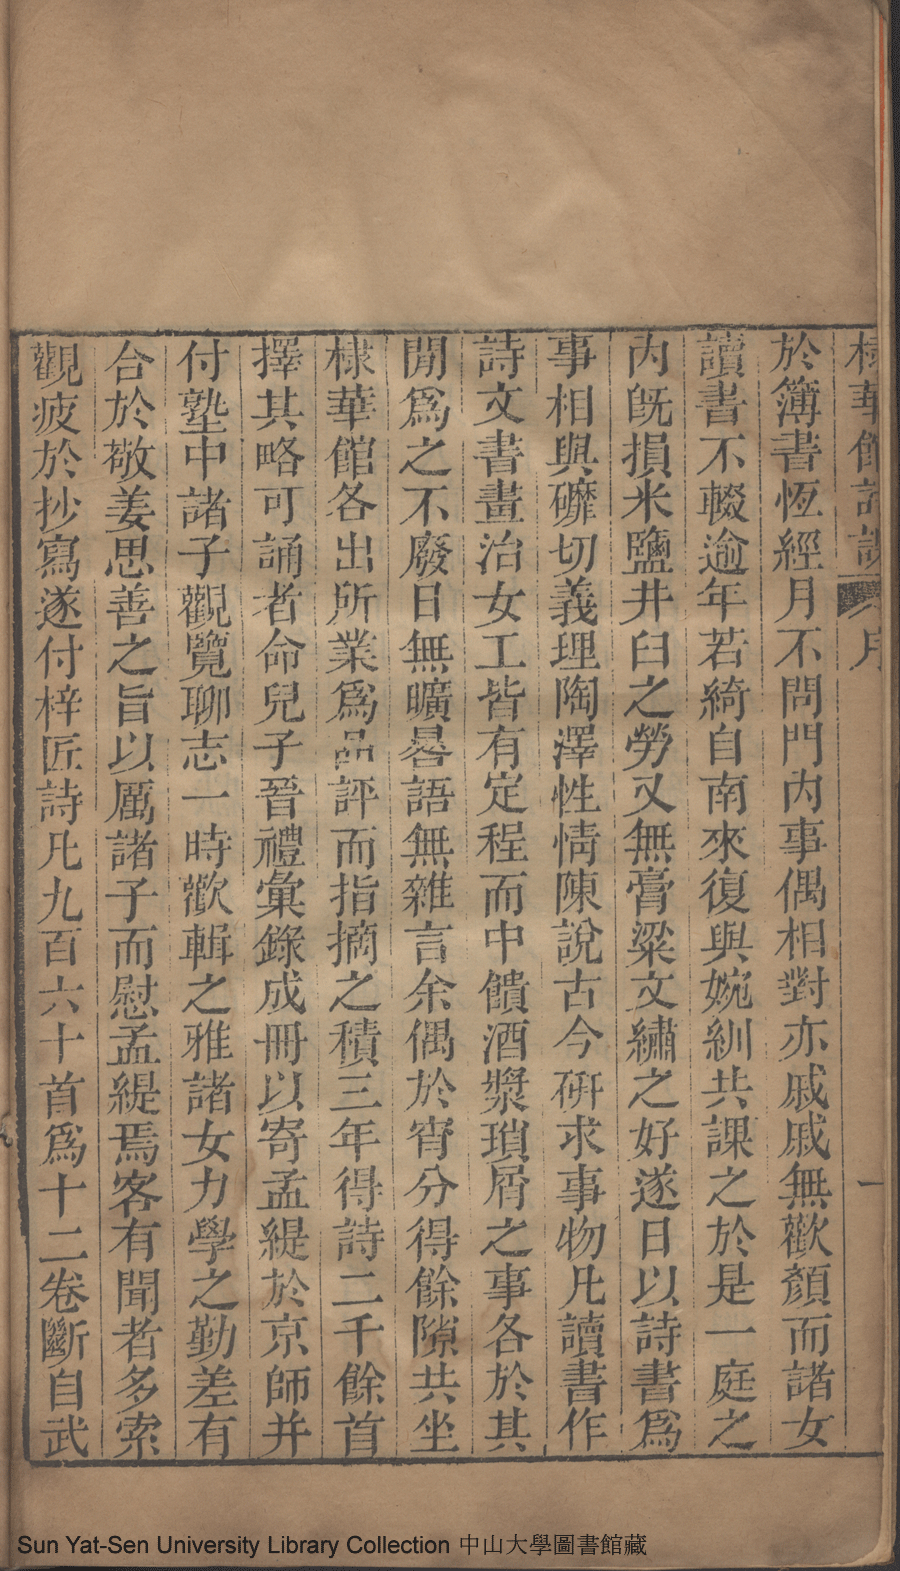 棣華館詩課 序 一
於簿書恆經月不問門内事偶相對亦戚戚無歡顏而諸女
讀書不輟逾年若綺自南來復與婉紃共課之於是一庭之
内旣損米鹽井臼之勞又無膏粱文繡之好遂日以詩書爲
事相與磨切義理陶澤性情陳說古今硏求事物凡讀書作
詩文書畫治女工皆有定程而中饋酒漿瑣屑之事各於其
閒爲之不廢日無曠晷語無雜言余偶於宵分得餘隙共坐
棣華館各出所業爲品評而指摘之積三年得詩二千餘首
擇其略可誦者命兒子晉禮彙錄成冊以寄孟緹於京師并
付塾中諸子觀覽聊志一時歡輯之雅諸女力學之勤差有
合於敬姜思善之旨以厲諸子而慰孟緹焉客有聞者多索
觀疲於抄寫遂付梓匠詩凡九百六十首爲十二卷斷自武
Sun Yat-Sen University Library Collection 中山大學圖書館藏